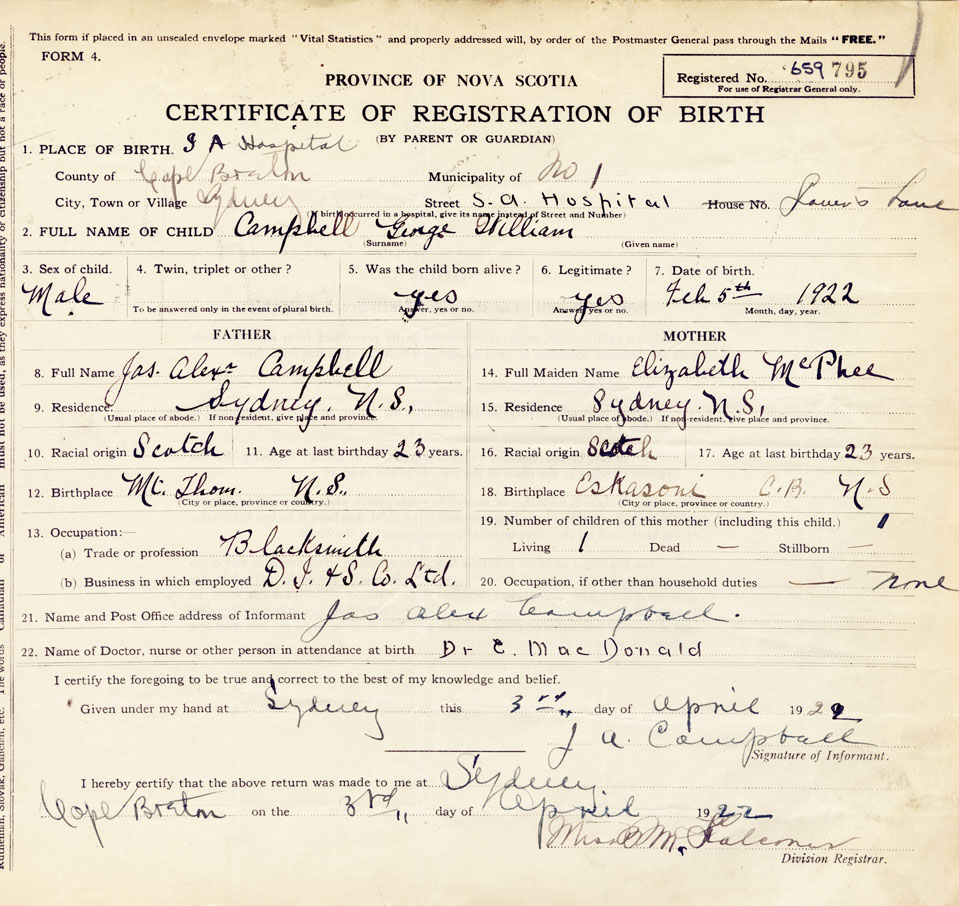 This form if placed in an unsealed envelope marked "Vital Statistics" and properly addressed will, by order of the Postmaster General pass through the Mails "FREE."
FORM 4.
Registered No. 659 795
For use of Registrar General only.
PROVINCE OF NOVA SCOTIA
CERTIFICATE OF REGISTRATION OF BIRTH
(BY PARENT OR GUARDIAN)
1. PLACE OF BIRTH. S A Hospital
County of Cape Breton Municipality of No 1
City, Town or Village Sydney Street S.A. Hospital House No. Lane
(If birth occurred in a hospital, give its name instead of Street and Number)
2. FULL NAME OF CHILD Campbell George William
(Surname) (Given name)
3. Sex of child. 4. Twin, triplet or other? 5. Was the child born alive? 6. Legitimate? 7. Date of birth.
Male yes yes Feb 5th 1922
To be answered only in the event of plural birth. Answer, yes or no. Answer yes or no. Month, day, year.
FATHER MOTHER
8. Full Name Jas. Alexr Campbell 14. Full Maiden Name Elizabeth McPhee
9. Residence. Sydney. N.S., 15. Residence Sydney. N.S.,
(Usual place of abode.) If non-resident, give place and province. (Usual place of abode.) If non-resident, give place and province.
10. Racial origin Scotch 11. Age at last birthday 23 years. 16. Racial origin Scotch 17. Age at last birthday 23 years.
12. Birthplace Mt. Thom. N.S. 18. Birthplace Eskasoni C.B. N.S
(City or place, province or country.) (City or place, province or country.)
19. Number of children of this mother (including this child.) 1
13. Occupation:—
(a) Trade or profession Blacksmith Living 1 Dead — Stillborn —
(b) Business in which employed D. I. & S. Co. Ltd. 20. Occupation, if other than household duties — none
21. Name and Post Office address of Informant Jas Alex Campbell.
22. Name of Doctor, nurse or other person in attendance at birth Dr C. MacDonald
I certify the foregoing to be true and correct to the best of my knowledge and belief.
Given under my hand at Sydney this 3rd day of April 1922
J A. Campbell
Signature of Informant.
I hereby certify that the above return was made to me at Sydney.
Cape Breton on the 3rd day of April 1922
Miss M. Falconer
Division Registrar.
must not be used, as they express nationality or citizenship but not a race or people.
The words Canadian or American
Ruthenian, Slovak, Galician, etc.